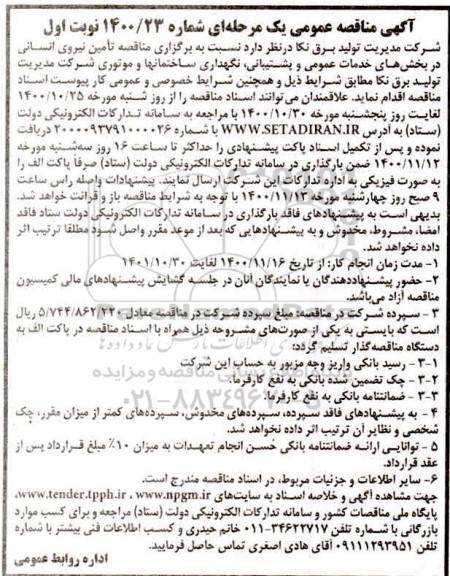 آگهی مناقصه عمومی یک مرحله‌ای شماره ۱۴۰۰/۲۳ نوبت اول
شرکت مدیریت تولید برق نکا درنظر دارد نسبت به برگزاری مناقصه تأمین نیروی انسانی
در بخش‌های خدمات عمومی و پشتیبانی، نگهداری ساختمانها و موتوری شرکت مدیریت
تولید برق نکا مطابق شرایط ذیل و همچنین شرایط خصوصی و عمومی کار پیوست اسناد
مناقصه اقدام نماید. علاقمندان می‌توانند اسناد مناقصه را از روز شنبه مورخه ۱۴۰۰/۱۰/۲۵
لغایت روز پنجشنبه مورخه ۱۴۰۰/۱۰/۳۰ با مراجعه به سامانه تدارکات الکترونیکی دولت
(ستاد) به آدرس WWW.SETADIRAN.IR با شماره ۲۰۰۰۰۹۳۷۹۱۰۰۰۰۲۶ دریافت
نموده و پس از تکمیل اسناد پاکت پیشنهادی را حداکثر تا ساعت ۱۶ روز سه‌شنبه مورخه
۱۴۰۰/۱۱/۱۲ ضمن بارگذاری در سامانه تدارکات الکترونیکی دولت (ستاد) صرفاً پاکت الف را
به صورت فیزیکی به اداره تدارکات این شرکت ارسال نمایند. پیشنهادات واصله راس ساعت
۹ صبح روز چهارشنبه مورخه ۱۴۰۰/۱۱/۱۳ با توجه به شرایط مناقصه باز و قرائت خواهد شد.
بدیهی است به پیشنهادهای فاقد بارگذاری در سامانه تدارکات الکترونیکی دولت ستاد فاقد
امضا، مشروط، مخدوش و به پیشنهادهایی که بعد از موعد مقرر واصل شود مطلقا ترتیب اثر
داده نخواهد شد.
۱- مدت زمان انجام کار: از تاریخ ۱۴۰۰/۱۱/۱۶ لغایت ۱۴۰۱/۱۰/۳۰
۲- حضور پیشنهاددهندگان یا نمایندگان آنان در جلسه گشایش پیشنهادهای مالی کمیسیون
مناقصه آزاد می‌باشد.
۳ - سپرده شرکت در مناقصه: مبلغ سپرده شرکت در مناقصه معادل ۵/۷۴۴/۸۶۲/۲۲۰ ریال
است که بایستی به یکی از صورت‌های مشروحه ذیل همراه با اسناد مناقصه در پاکت الف به
دستگاه مناقصه‌گذار تسلیم گردد:
۳-۱ - رسید بانکی واریز وجه مزبور به حساب این شرکت
۳-۲ چک تضمین شده بانکی به نفع کارفرما.
۳-۳ - ضمانتنامه بانکی به نفع کارفرما.
۴- به پیشنهادهای فاقد سپرده، سپرده‌های مخدوش، سپرده‌های کمتر از میزان مقرر، چک
شخصی و نظایر آن ترتیب اثر داده نخواهد شد.
۵ - توانایی ارائه ضمانتنامه بانکی حسن انجام تعهدات به میزان ۱۰٪ مبلغ قرارداد پس از
عقد قرارداد.
۶- سایر اطلاعات و جزئیات مربوط، در اسناد مناقصه مندرج است.
جهت مشاهده آگهی و خلاصه اسناد به سایت‌های www.npgm.ir ، www.tender.tpph.ir،
پایگاه ملی مناقصات کشور و سامانه تدارکات الکترونیکی دولت (ستاد) مراجعه و برای کسب موارد
بازرگانی با شماره تلفن ۳۴۶۲۲۷۱۷-۰۱۱ خانم حیدری و کسب اطلاعات فنی بیشتر با شماره
تلفن ۰۹۱۱۱۲۹۳۹۵۱ آقای هادی اصغری تماس حاصل فرمایید.
اداره روابط عمومی